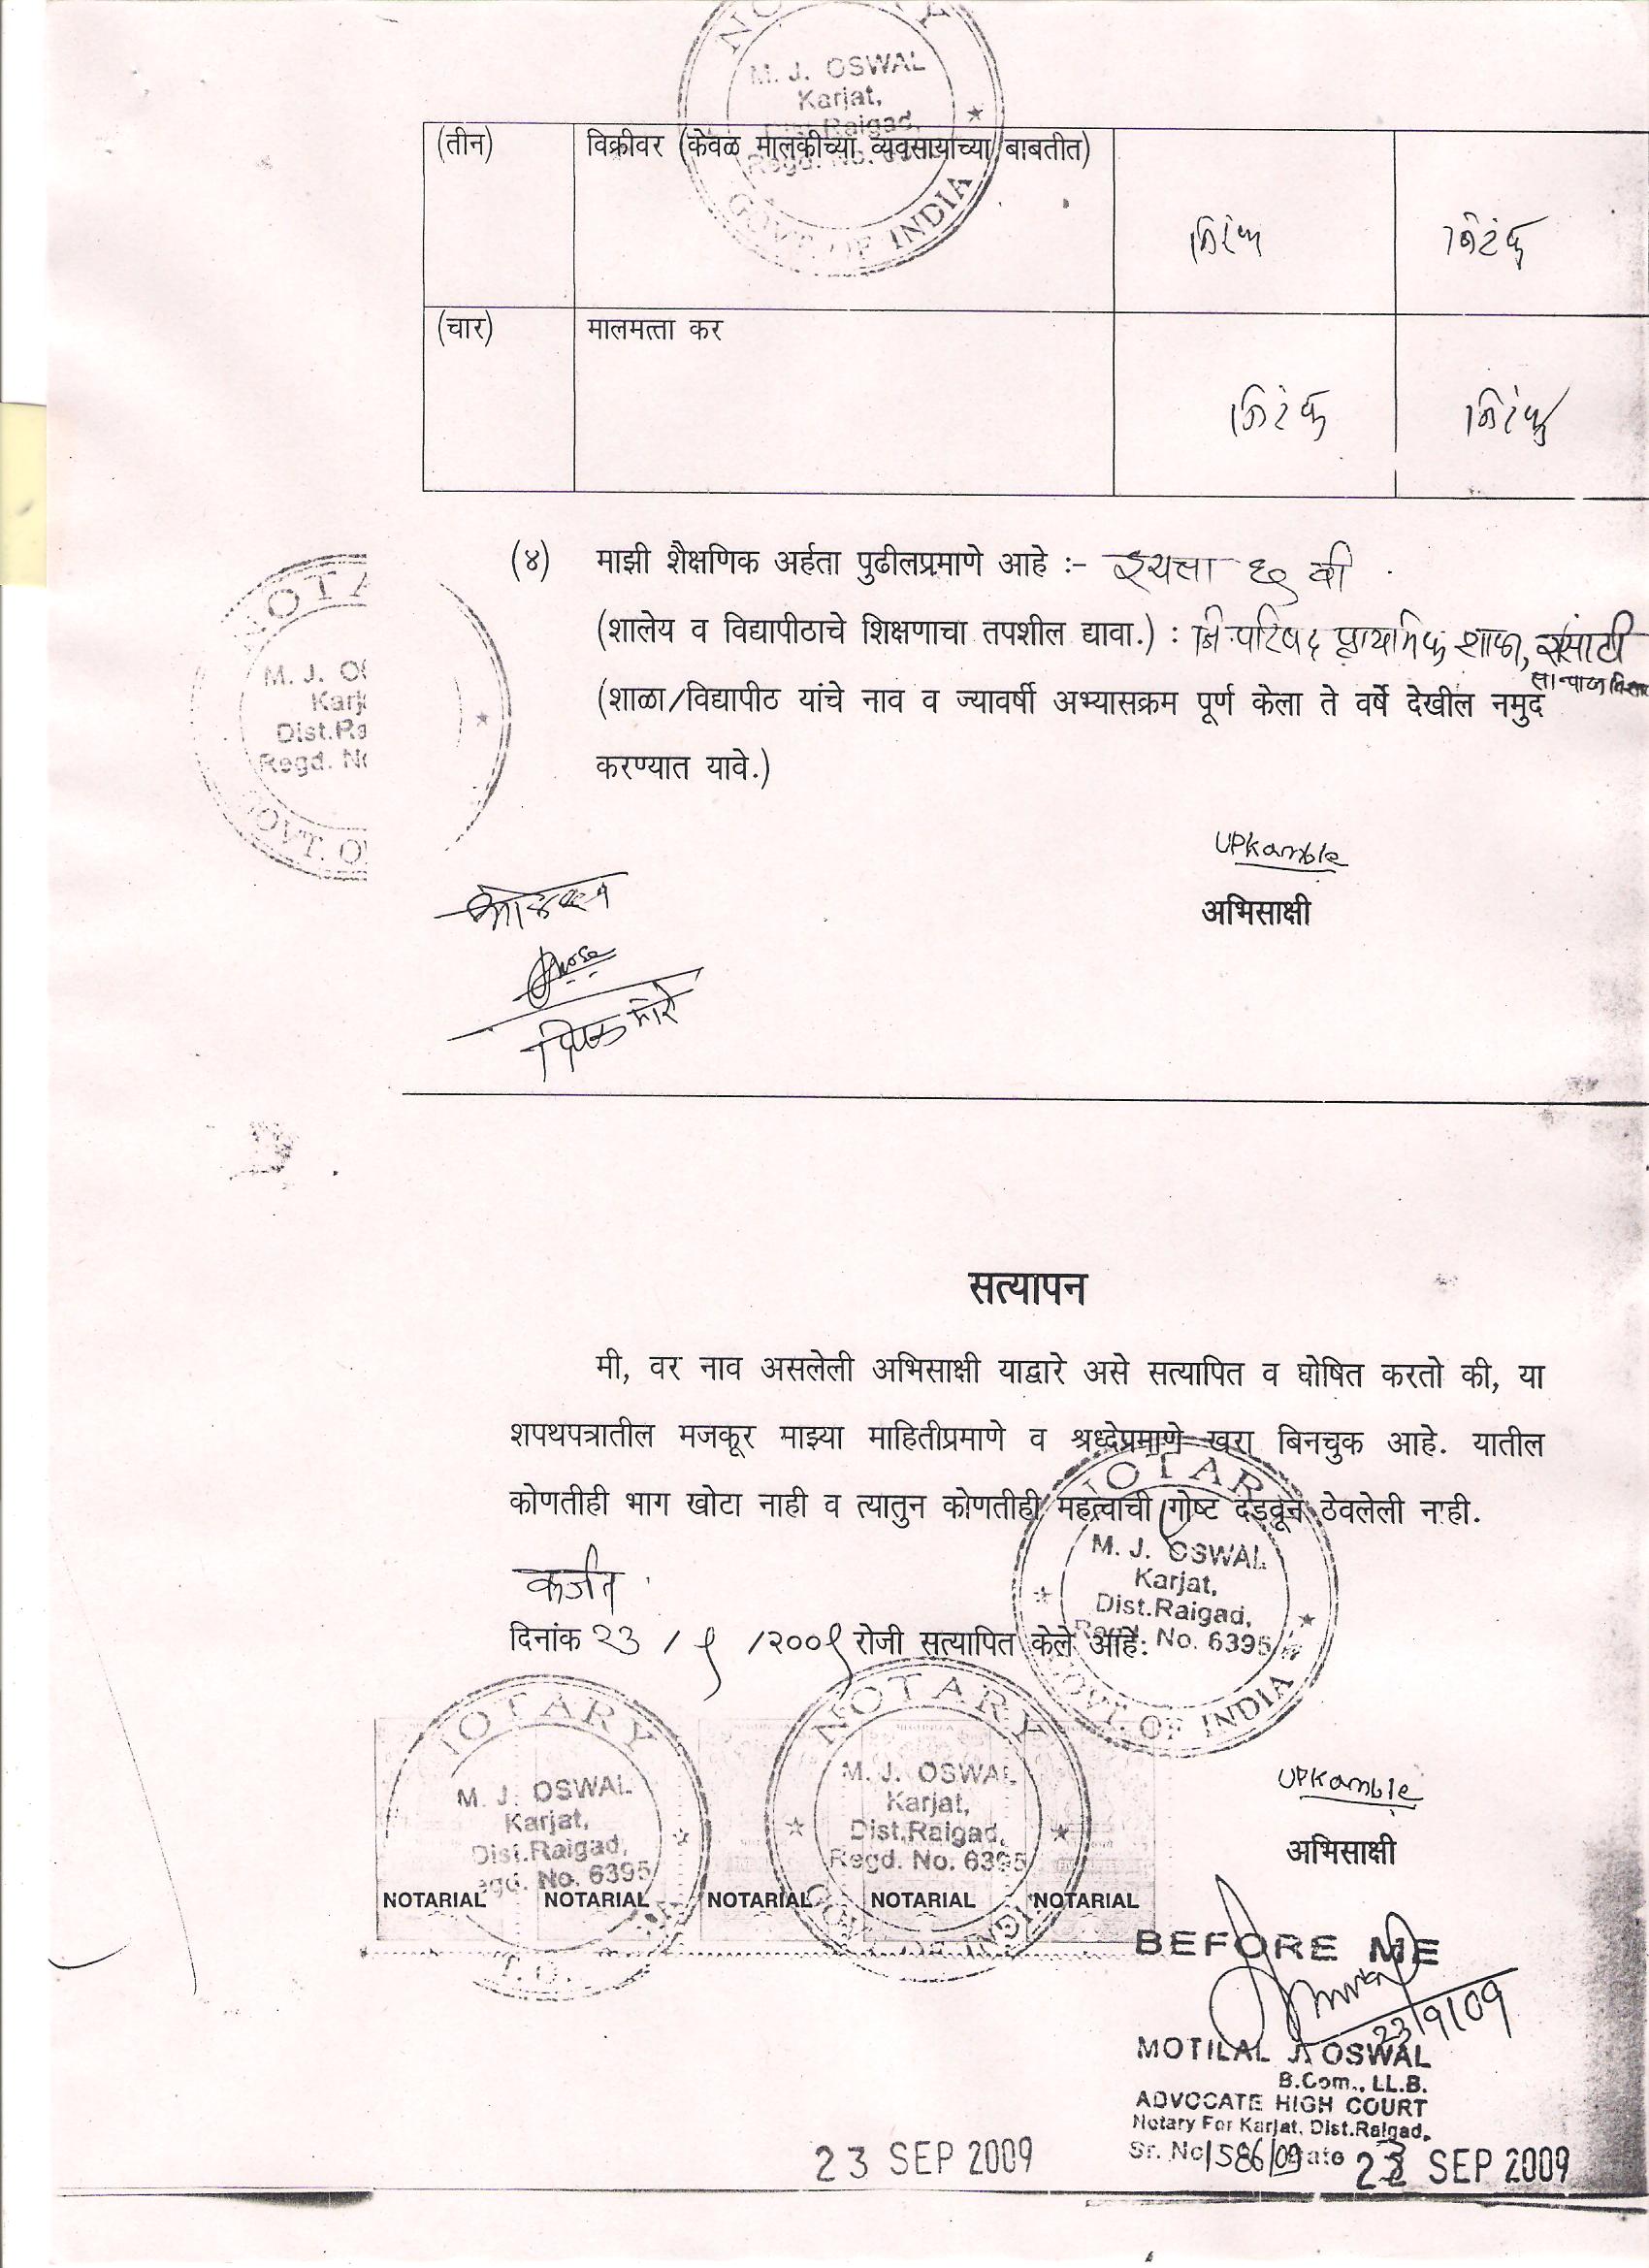 NOTARY
M. J. OSWAL
Karjat,
Dist.Raigad,
Regd. No.
GOVT. OF INDIA
(तीन) विक्रीवर (केवळ मालकीच्या व्यवसायाच्या बाबतीत)
निरंक निरंक
(चार) मालमत्ता कर
निरंक निरंक
(४) माझी शैक्षणिक अर्हता पुढीलप्रमाणे आहे :- इयत्ता वी
(शालेय व विद्यापीठाचे शिक्षणाचा तपशील द्यावा.) : जि परिषद प्राथमिक शाळा,
(शाळा/विद्यापीठ यांचे नाव व ज्यावर्षी अभ्यासक्रम पूर्ण केला ते वर्षे देखील नमुद
करण्यात यावे.)
NOTA
M. J. OS
Karj
Dist.Ra
Regd. No
GOVT. O
UPKamble
अभिसाक्षी
मोरे
सत्यापन
मी, वर नाव असलेली अभिसाक्षी याद्वारे असे सत्यापित व घोषित करतो की, या
शपथपत्रातील मजकूर माझ्या माहितीप्रमाणे व श्रध्देप्रमाणे खरा बिनचुक आहे. यातील
कोणतीही भाग खोटा नाही व त्यातुन कोणतीही महत्वाची गोष्ट दडवून ठेवलेली नाही.
कर्जत
दिनांक २३ / ९ /२००९ रोजी सत्यापित केले आहे.
NOTARY
M. J. OSWAL
Karjat,
Dist.Raigad,
Regd. No. 6395
GOVT. OF INDIA
NOTARY
M. J. OSWAL
Karjat,
Dist.Raigad,
egd. No. 6395
NOTARY
M. J. OSWAL
Karjat,
Dist.Raigad,
Regd. No. 6395
GOVT. OF INDIA
NOTARIAL NOTARIAL NOTARIAL NOTARIAL NOTARIAL
UPKamble
अभिसाक्षी
BEFORE ME
23/9/09
MOTILAL J. OSWAL
B.Com., LL.B.
ADVOCATE HIGH COURT
Notary For Karjat, Dist.Raigad.
Sr. No 1586/09 Date 23 SEP 2009
23 SEP 2009